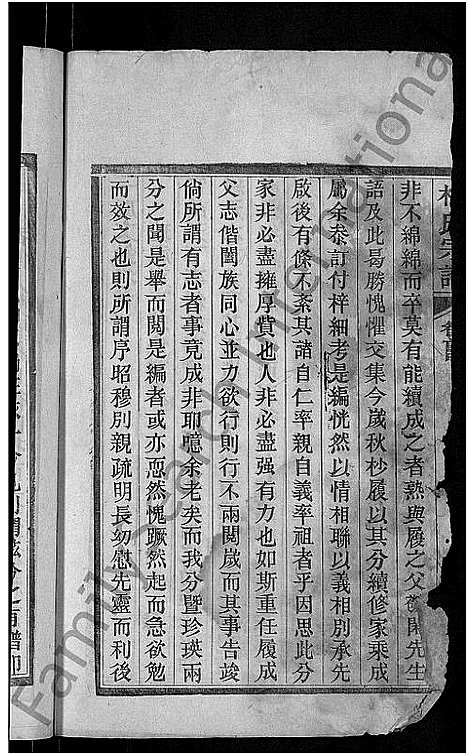 氏宗譜 卷首
非不綿綿而卒莫有能續成之者熟與履之父 閑先生
語及此曷勝愧懼交集今歲秋杪履以其分續修家乘成
屬余叅訂付梓細考是編恍然以情相聯以義相別承先
啟後有條不紊其諸自仁率親自義率祖者乎因思此分
家非必盡擁厚貲也人非必盡强有力也如斯重任履成
父志偕闔族同心並力欲行則行不兩閱歲而其事告竣
倘所謂有志者事竟成非耶噫余老矣而我分暨珍瑛兩
分之聞是舉而閱是編者或亦恧然愧蹶然起而急欲勉
而效之也則所謂序昭穆別親疏明長幼慰先靈而利後
Family Search International